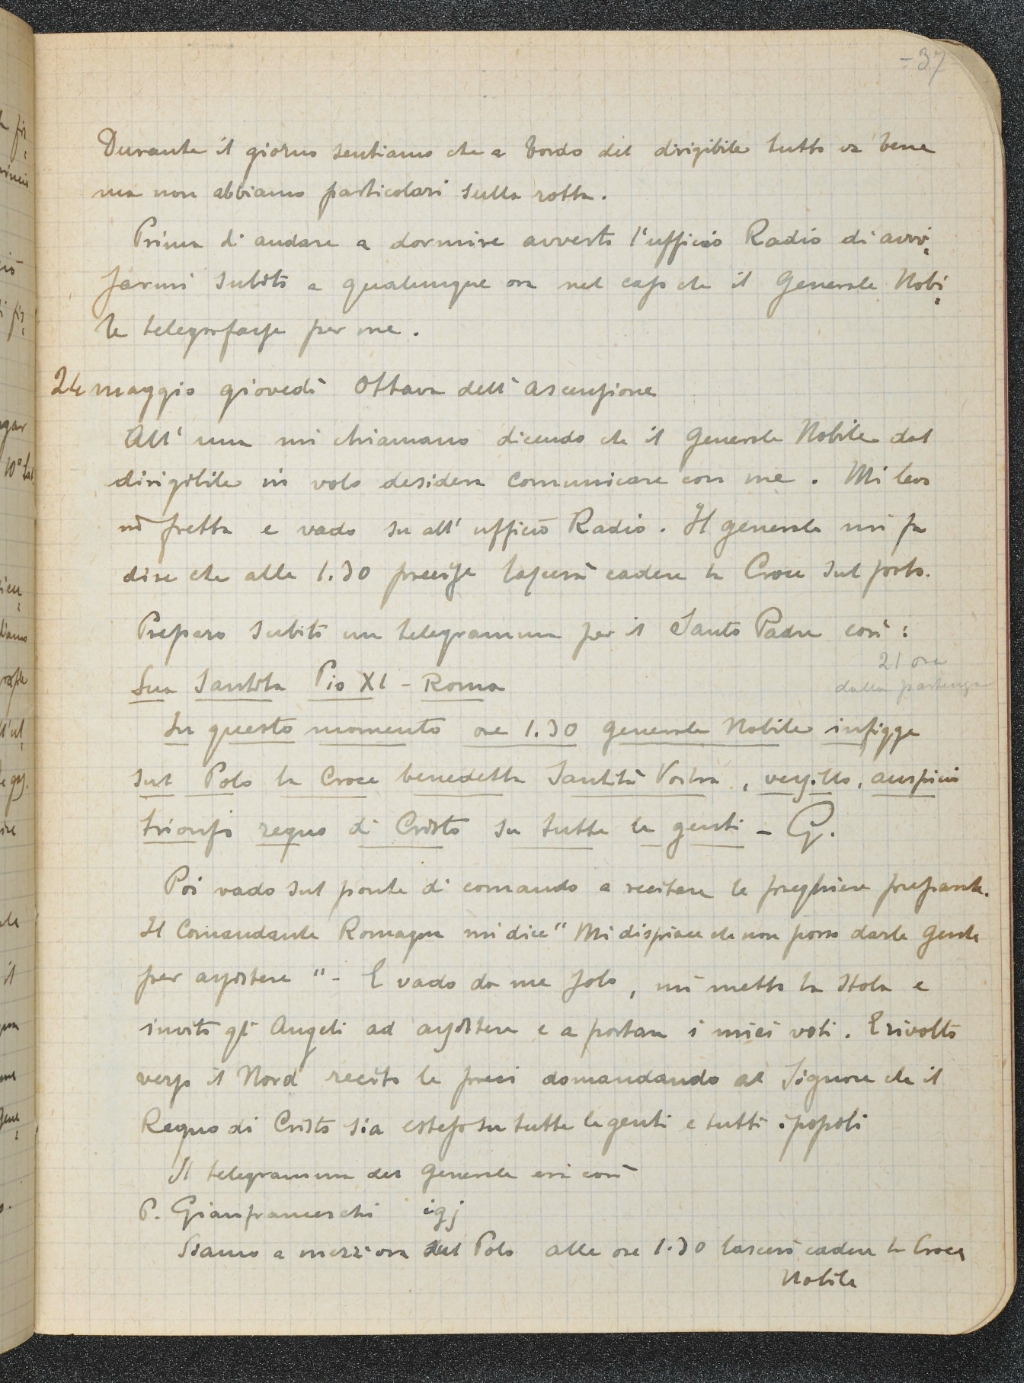 -37
Durante il giorno sentiamo che a bordo del dirigibile tutto va bene
ma non abbiamo particolari sulla rotta.
Prima di andare a dormire avverto l'ufficio Radio di avvi-
sarmi subito a qualunque ora nel caso che il Generale Nobi-
le telegrafasse per me.
24 maggio giovedì Ottava dell'Ascensione
All'una mi chiamano dicendo che il Generale Nobile dal
dirigibile in volo desidera comunicare con me. Mi levo
in fretta e vado su all'ufficio Radio. Il generale mi fa
dire che alle 1.30 precise lascerà cadere la Croce sul polo.
Preparo subito un telegramma per il Santo Padre così:
21 ore
dalla partenza
Sua Santità Pio XI - Roma
In questo momento ore 1.30 generale Nobile infigge
sul Polo la Croce benedetta Santità Vostra, vessillo, auspicio
trionfo regno di Cristo su tutte le genti - G.
Poi vado sul ponte di comando a recitare le preghiere preparate.
Il Comandante Romagna mi dice "Mi dispiace che non posso darle gente
per assistere" - E vado da me solo, mi metto la stola e
invito gli Angeli ad assistere e a portare i miei voti. E rivolto
verso il Nord recito le preci domandando al Signore che il
Regno di Cristo sia esteso su tutte le genti e tutti i popoli
Il telegramma del Generale era così
P. Gianfranceschi igj
Siamo a mezz'ora dal Polo alle ore 1.30 lascerò cadere la Croce
Nobile